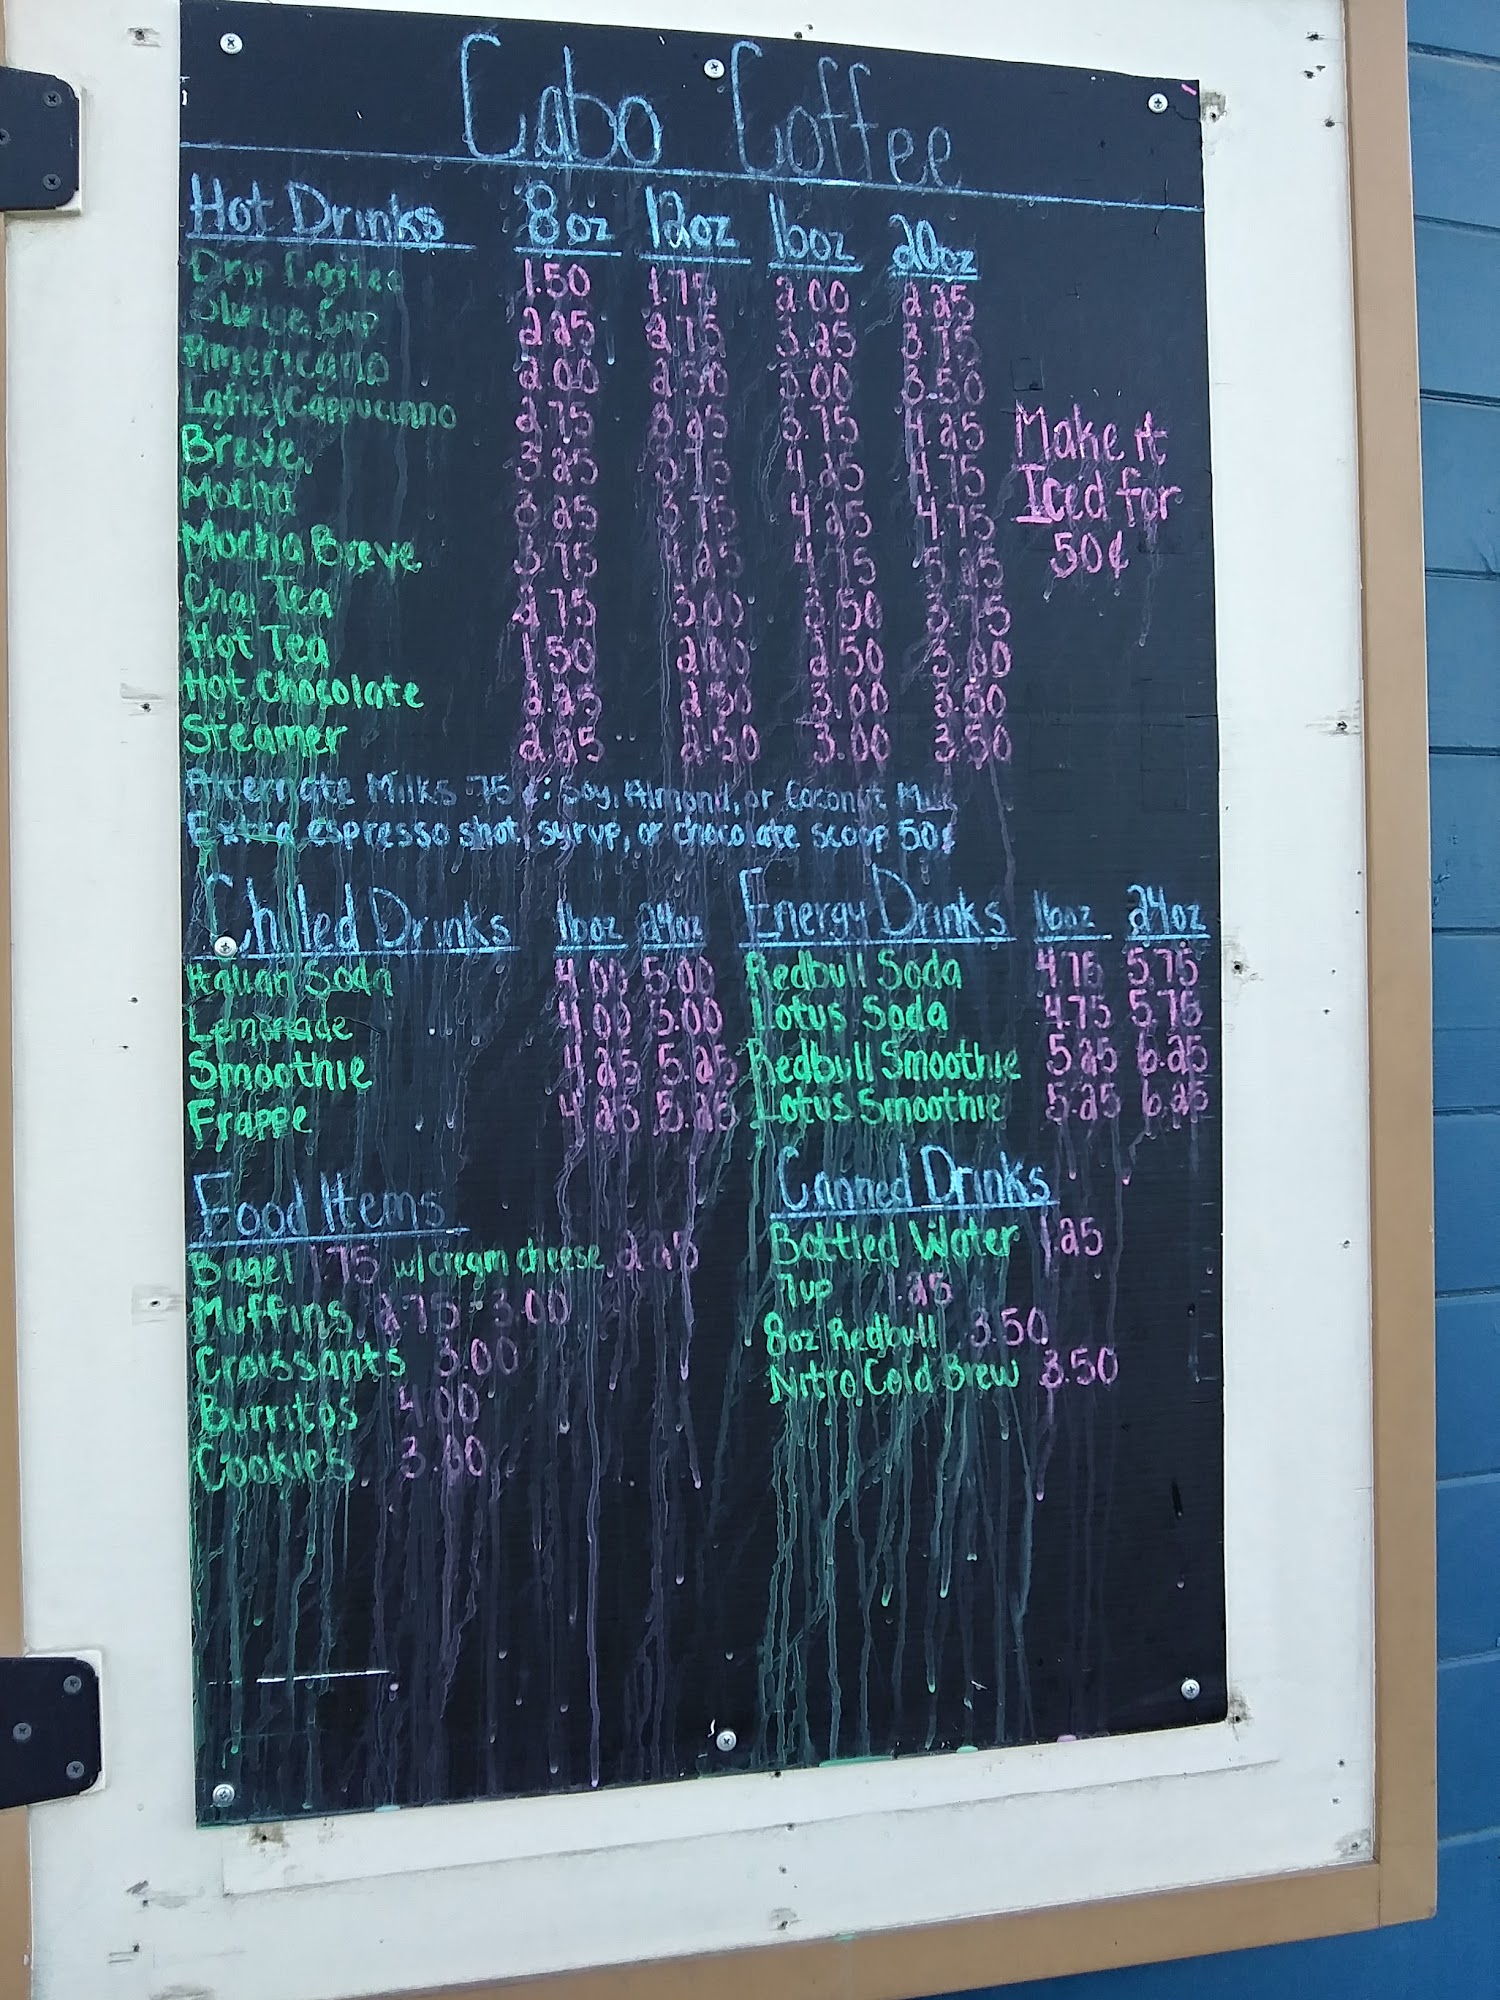 Cabo Coffee
Hot Drinks 8oz 12oz 16oz 20oz
Drip Coffee 1.50 1.75 2.00 2.25
Sludge Cup 2.25 2.75 3.25 3.75
Americano 2.00 2.50 3.00 3.50
Latte/Cappucinno 2.75 3.25 3.75 4.25
Breve 3.25 3.75 4.25 4.75
Mocha 3.25 3.75 4.25 4.75
Mocha Breve 3.75 4.25 4.75 5.25
Chai Tea 2.75 3.00 3.50 3.75
Hot Tea 1.50 2.00 2.50 3.00
Hot Chocolate 2.25 2.50 3.00 3.50
Steamer 2.25 2.50 3.00 3.50
Make it
Iced for
50¢
Alternate Milks 75¢: Soy, Almond, or Coconut Milk
Extra espresso shot, syrup, or chocolate scoop 50¢
Chilled Drinks 16oz 24oz
Italian Soda 4.00 5.00
Lemonade 4.00 5.00
Smoothie 4.25 5.25
Frappe 4.25 5.25
Energy Drinks 16oz 24oz
Redbull Soda 4.75 5.75
Lotus Soda 4.75 5.75
Redbull Smoothie 5.25 6.25
Lotus Smoothie 5.25 6.25
Food Items
Bagel 1.75 w/cream cheese 2.25
Muffins 2.75 - 3.00
Croissants 3.00
Burritos 4.00
Cookies 3.00
Canned Drinks
Bottled Water 1.25
7up 1.25
8oz Redbull 3.50
Nitro Cold Brew 3.50